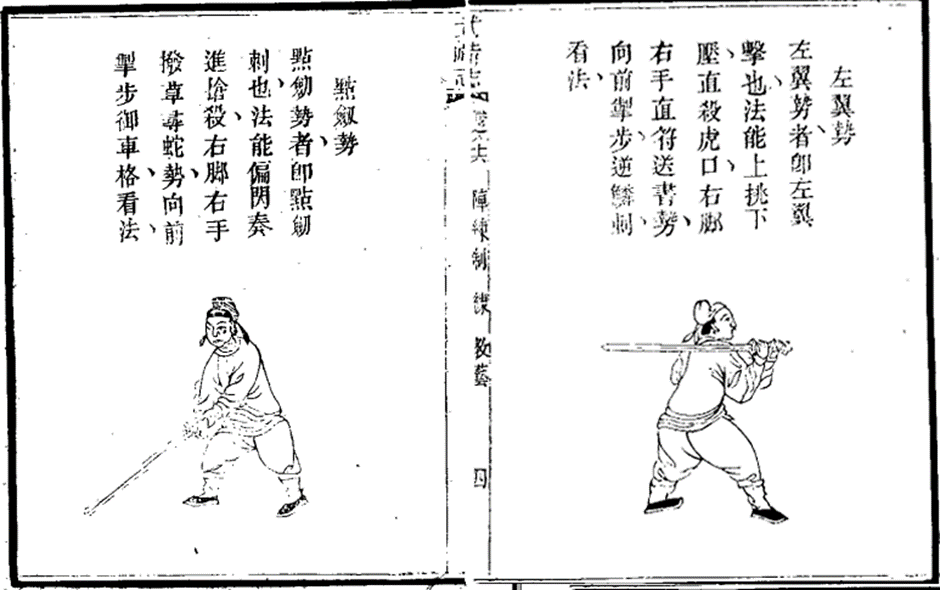 左翼勢
左翼勢、者即左翼
擊也、法能上挑下
壓、直殺虎口、右脚
右手直符送書勢、
向前掣步、逆鱗刺、
看法、
陣練制 練 教藝 四
點劒勢
點劒勢、者即點劒
刺也、法能偏閃奏
進搶殺、右脚右手
撥草尋蛇勢、向前
掣步御車格、看法、